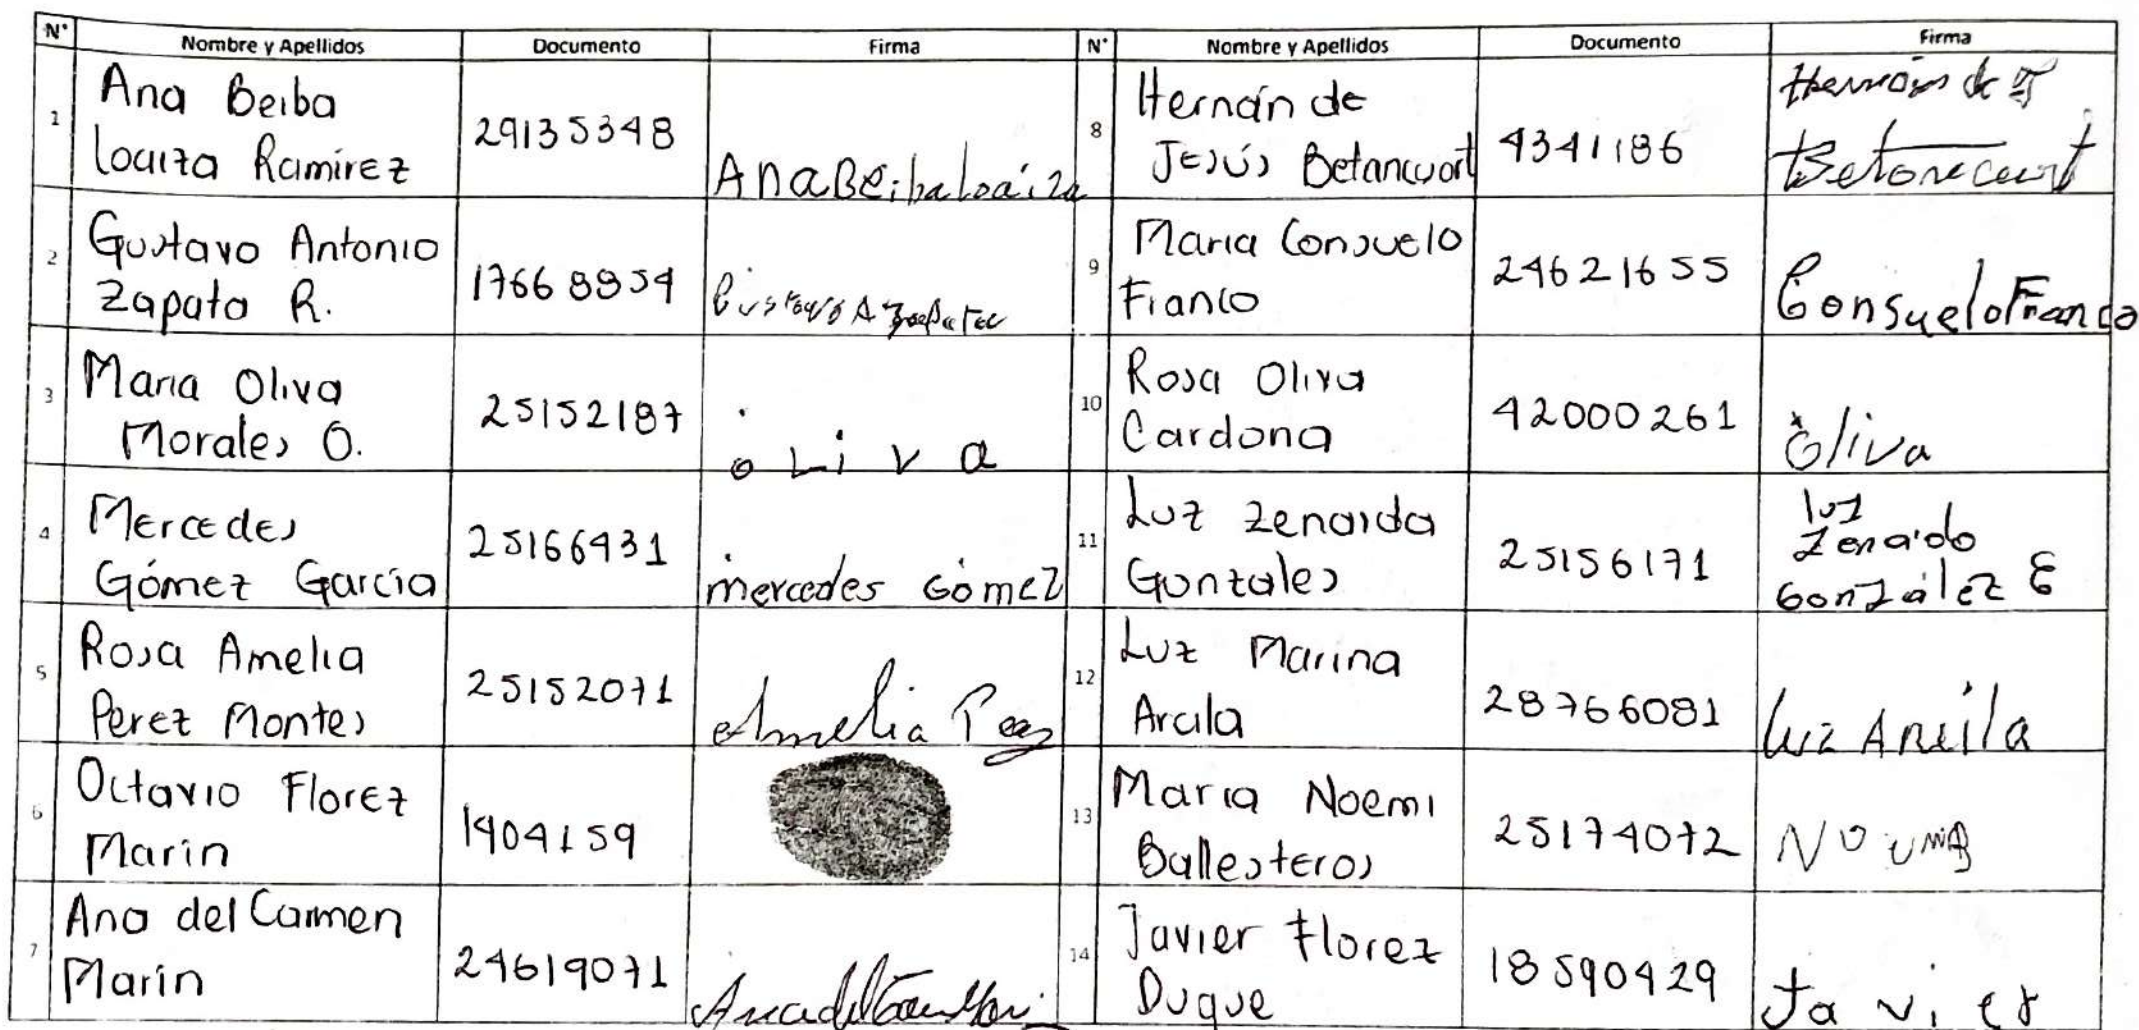 N° Nombre y Apellidos Documento Firma N° Nombre y Apellidos Documento Firma
1 Ana Beiba
Loaiza Ramírez
29135348
Ana Beiba Loaiza
8 Hernán de
Jesús Betancourt
4341186
Hernán de J
Betancourt
2 Gustavo Antonio
Zapata R.
17668854
Gustavo A Zapata
9 Maria Consuelo
Franco
24621655
Consuelo Franco
3 Maria Oliva
Morales O.
25152187
oLiva
10 Rosa Oliva
Cardona
42000261
Oliva
4 Mercedes
Gómez García
25166431
mercedes Gómez
11 Luz Zenaida
Gonzales
25156171
luz
Zenaido
González E
5 Rosa Amelia
Perez Montes
25152071
Amelia
12 Luz Marina
Arcila
28766081
Luz Arcila
6 Octavio Florez
Marin
1404159
13 Maria Noemi
Ballesteros
25174072
7 Ana del Carmen
Marín
24619071
14 Javier Florez
Duque
18590429
Javier